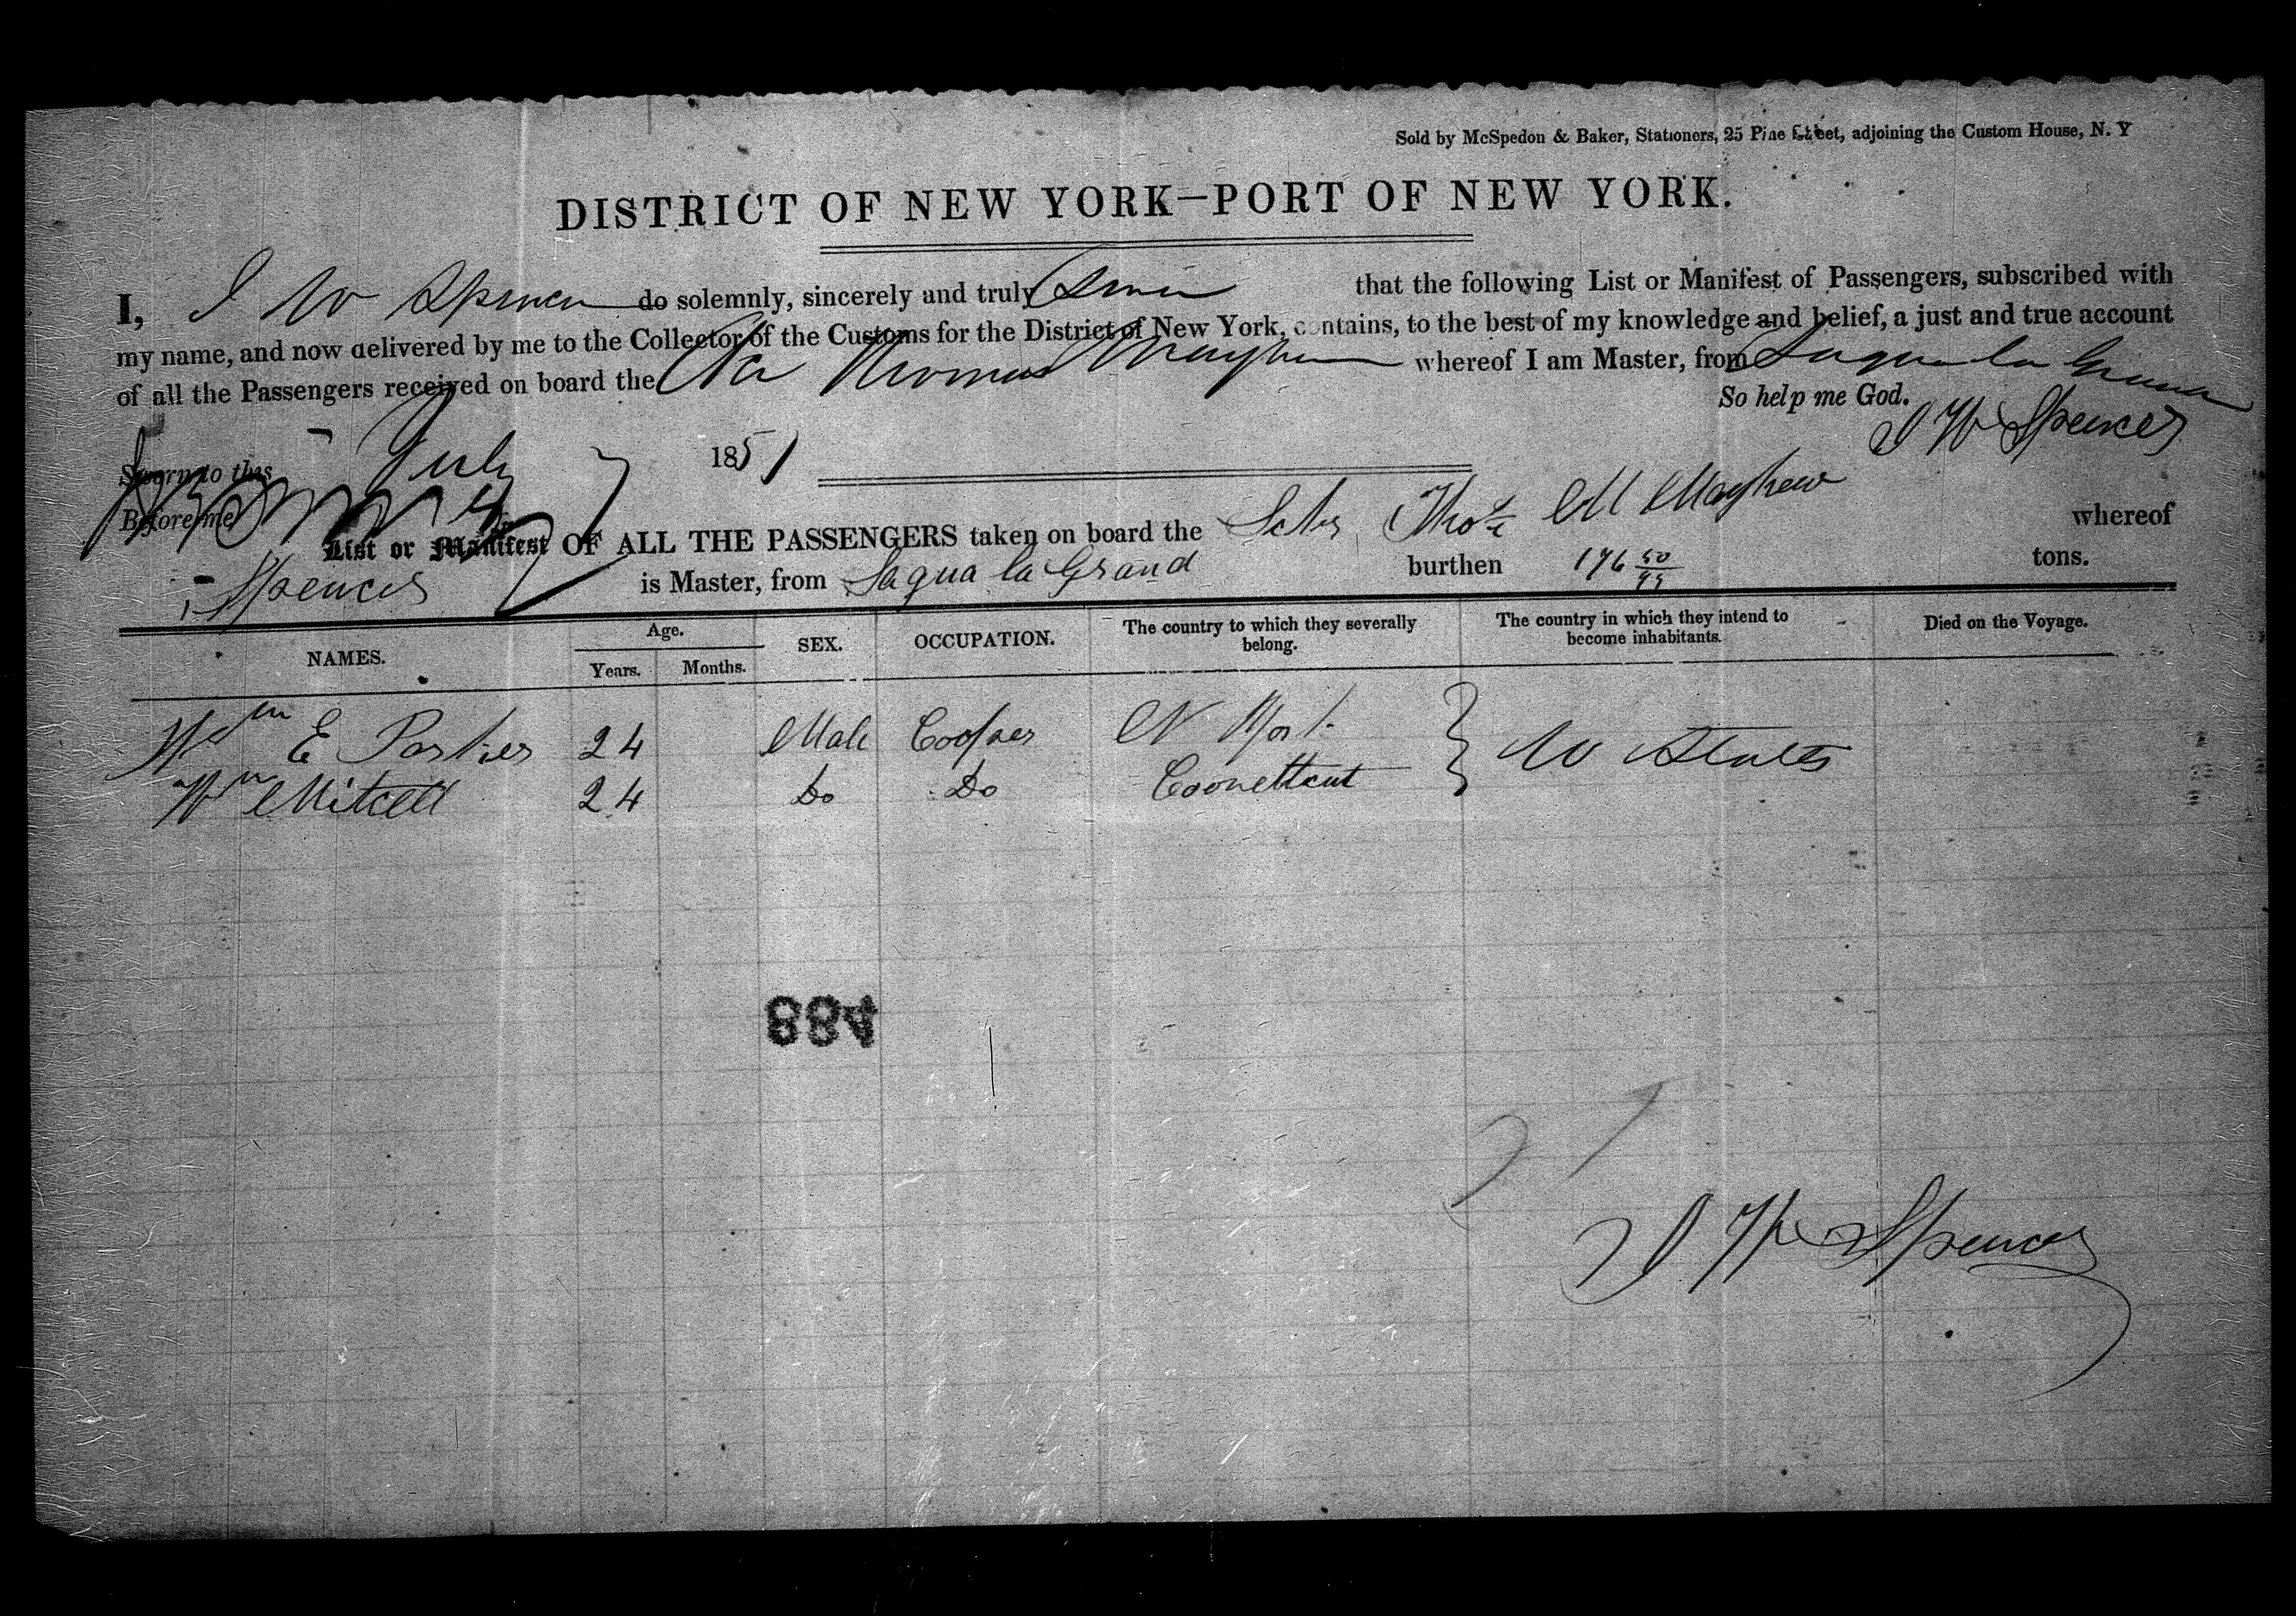 Sold by McSpedon & Baker, Stationers, 25 Pine Street, adjoining the Custom House, N. Y
DISTRICT OF NEW YORK—PORT OF NEW YORK.
I, I W Spencer do solemnly, sincerely and truly swear that the following List or Manifest of Passengers, subscribed with
my name, and now delivered by me to the Collector of the Customs for the District of New York, contains, to the best of my knowledge and belief, a just and true account
of all the Passengers received on board the Thomas Mayhew whereof I am Master, from Sagua la Grand
So help me God.
I W Spencer
Sworn to this July 1851
Before me
List or Manifest OF ALL THE PASSENGERS taken on board the Schr Thos M Mayhew whereof
Spencer is Master, from Sagua la Grand burthen 196 50/95 tons.
NAMES. Age. Years. Months. SEX. OCCUPATION. The country to which they severally belong. The country in which they intend to become inhabitants. Died on the Voyage.
Wm E Parker 24 Male Cooper N York } U States
Wm Mitcell 24 Do Do Coonetticut
884
I W Spencer